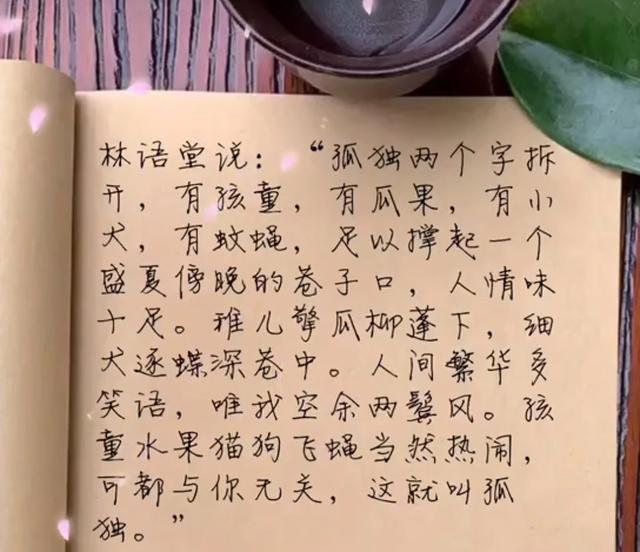 林语堂说：“孤独两个字拆
开，有孩童，有瓜果，有小
犬，有蚊蝇，足以撑起一个
盛夏傍晚的巷子口，人情味
十足。稚儿擎瓜柳蓬下，细
犬逐蝶深巷中。人间繁华多
笑语，唯我空余两鬓风。孩
童水果猫狗飞蝇当然热闹，
可都与你无关，这就叫孤
独。”